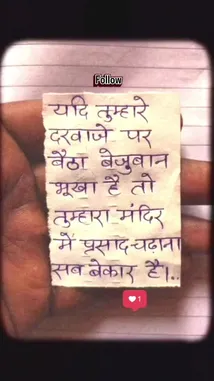 Follow
यदि तुम्हारे
दरवाजे पर
बैठा बेजुबान
भूखा है तो
तुम्हारा मंदिर
में प्रसाद चढ़ाना
सब बेकार है।..
1